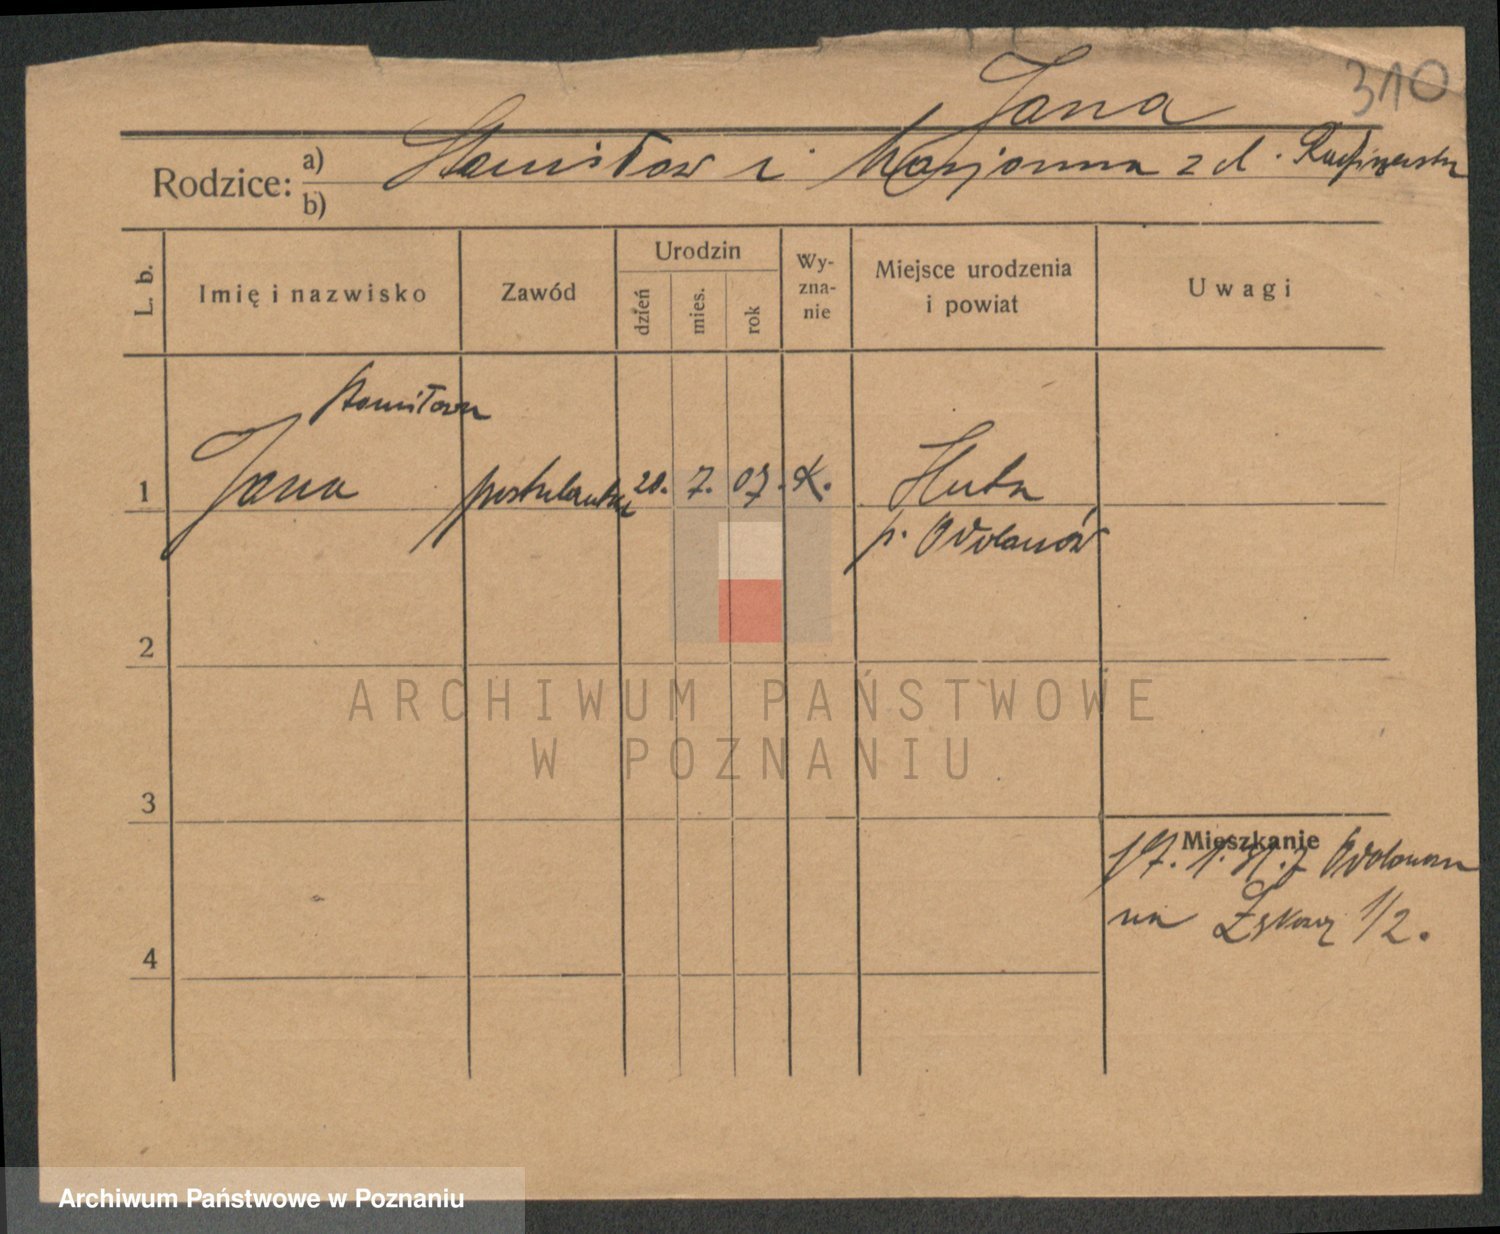 310
Jana
Rodzice: a) b) Stanisław i Marjanna z d.
L. b. Imię i nazwisko Zawód Urodzin dzień mies. rok Wy-zna-nie Miejsce urodzenia i powiat Uwagi
Stanisława
1 Jana postulantka 20. 7. 07. K. Huta
p. Odolanów
2
ARCHIWUM PAŃSTWOWE
W POZNANIU
3
Mieszkanie
17. 1. 31. z Odolanowa
na 1/2.
4
Archiwum Państwowe w Poznaniu